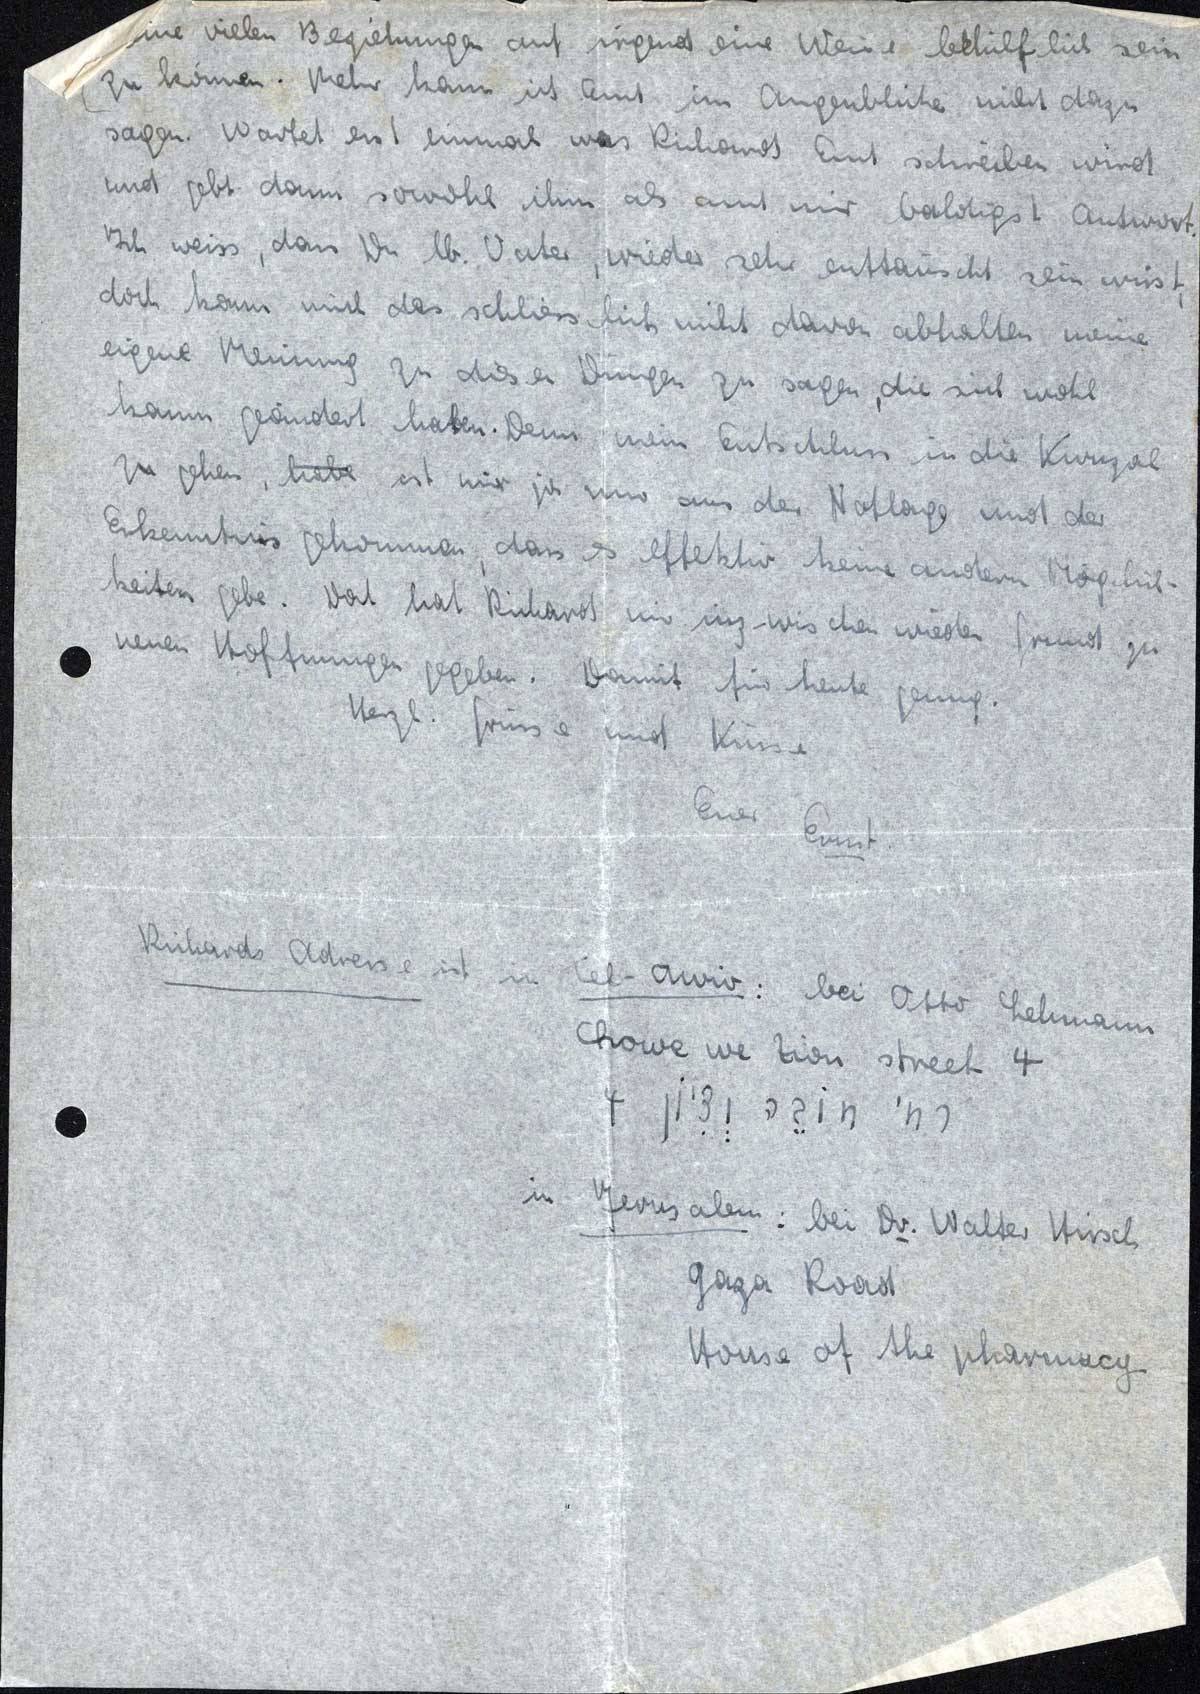 eine vielen Beziehungen auf irgend eine Weise behilflich sein
zu können. Mehr kann ich Euch im Augenblicke nicht dazu
sagen. Wartet erst einmal was Richard Euch schreiben wird
und gebt dann sowohl ihm als auch mir baldigst Antwort.
Ich weiss, dass Du lb. Vater, wieder sehr enttäuscht sein wirst,
doch kann mich das schliesslich nicht davon abhalten meine
eigene Meinung zu diesen Dingen zu sagen, die sich wohl
kaum geändert haben. Denn mein Entschluss in die
zu gehen, habe ist mir ja nur aus der Notlage und der
Erkenntnis gekommen, dass es effektiv keine andern Möglich-
keiten gebe. Doch hat Richard mir inzwischen wieder Grund zu
neuen Hoffnungen gegeben. Damit für heute genug.
Herzl. Grüsse und Küsse
Euer Ernst.
Richards Adresse ist in Tel-Awiw: bei Otto Lehmann
Chowe we Zion street 4
רח' חובה וציון 4
in Jerusalem: bei Dr. Walter Hirsch
Gaza Road
House of the pharmacy